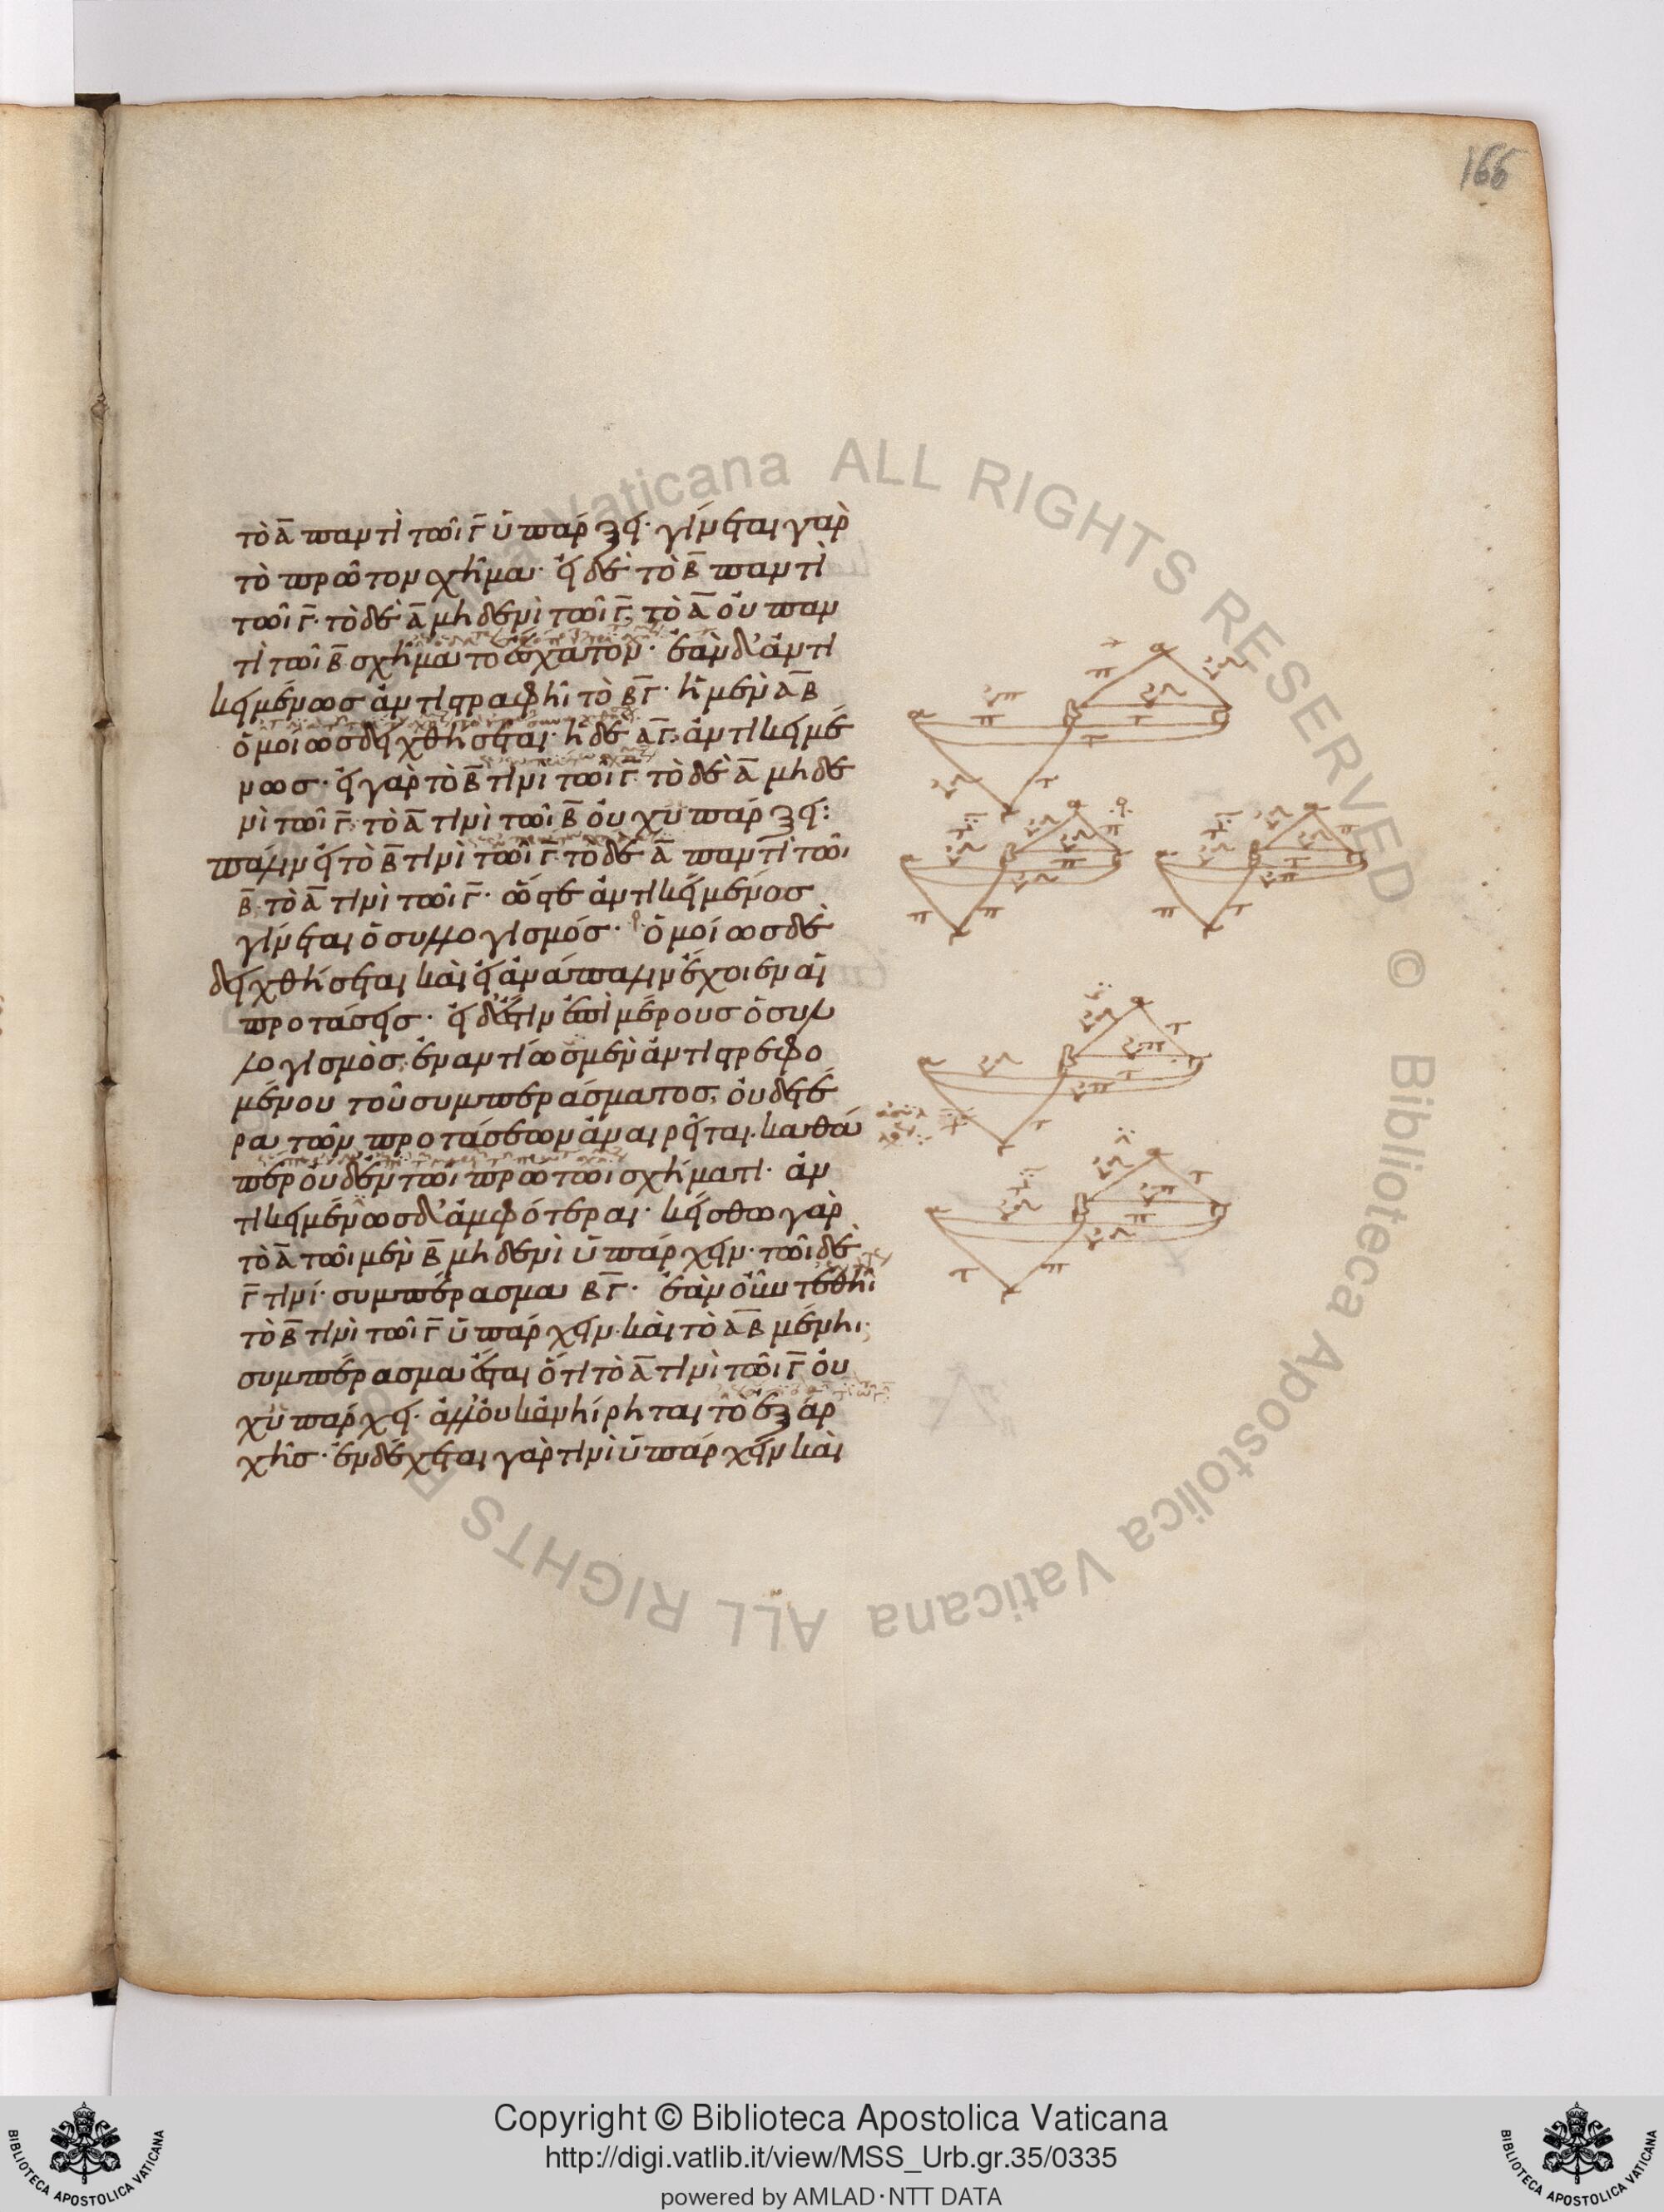 166
τὸ Α̅ παντὶ τῶι Γ̅ ὑπάρξει· γίνεται γὰρ
τὸ πρῶτον σχῆμα· εἰ δὲ τὸ Β̅ παντὶ
τῶι Γ̅· τὸ δὲ Α̅ μηδενὶ τῶι Γ̅, τὸ Α̅ οὐ παν
τὶ τῶι Β̅ σχῆμα τὸ ἔσχατον· ἐὰν δ' ἀντι
κειμένως ἀντιστραφῆι τὸ Β̅Γ̅· ἡ μὲν Α̅Β̅
ὁμοίως δειχθήσεται· ἡ δὲ Α̅Γ̅, ἀντικειμέ
νως· εἰ γὰρ τὸ Β̅ τινὶ τῶι Γ̅· τὸ δὲ Α̅ μηδε
νὶ τῶι Γ̅, τὸ Α̅ τινὶ τῶι Β̅ οὐχ ὑπάρξει:
πάλιν εἰ τὸ Β̅ τινὶ τῶι Γ̅· τὸ δὲ Α̅ παντὶ τῶι
Β̅, τὸ Α̅ τινὶ τῶι Γ̅· ὥστε ἀντικείμενος
γίνεται ὁ συλλογισμός· ὁμοίως δὲ
δειχθήσεται καὶ εἰ ἀνάπαλιν ἔχοιεν αἱ
προτάσεις· εἰ δέ ἐστιν ἐπὶ μέρους ὁ συλ
λογισμὸς, ἐναντίως μὲν ἀντιστρεφο
μένου τοῦ συμπεράσματος, οὐδετέ
ρα τῶν προτάσεων ἀναιρεῖται. καθά
περ οὐδ' ἐν τῶι πρώτωι σχήματι· ἀν
τικειμένως δ' ἀμφότεραι· κείσθω γὰρ
τὸ Α̅ τῶι μὲν Β̅ μηδενὶ ὑπάρχειν· τῶι δὲ
Γ̅ τινί· συμπέρασμα ΒΓ̅· ἐὰν οὖν τεθῆι
τὸ Β̅ τινὶ τῶι Γ̅ ὑπάρχειν· καὶ τὸ Α̅Β̅ μένηι,
συμπέρασμα ἔσται ὅτι τὸ Α̅ τινὶ τῶι Γ̅ οὐ
χ ὑπάρχει· ἀλλ' οὐκ ἀνήιρηται τὸ ἐξ ἀρ
χῆς· ἐνδέχεται γὰρ τινὶ ὑπάρχειν καὶ
Biblioteca Apostolica Vaticana ALL RIGHTS RESERVED ©
Copyright © Biblioteca Apostolica Vaticana
http://digi.vatlib.it/view/MSS_Urb.gr.35/0335
powered by AMLAD·NTT DATA
BIBLIOTECA APOSTOLICA VATICANA
BIBLIOTECA APOSTOLICA VATICANA